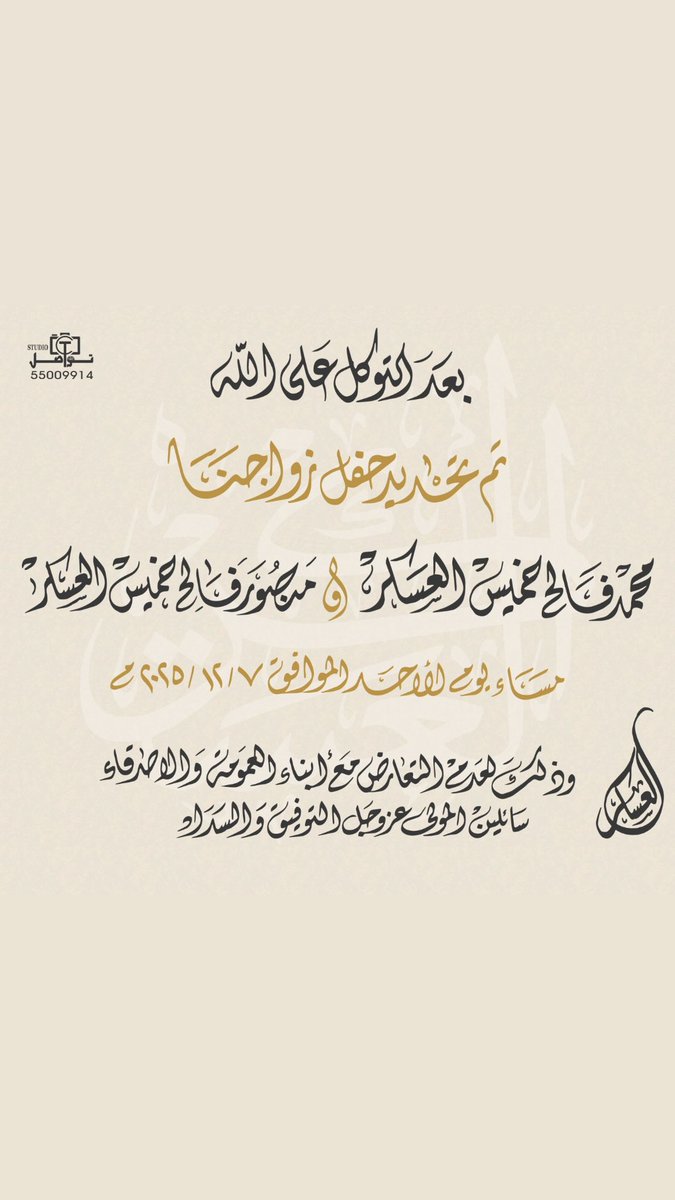 STUDIO
تواصل
55009914
بعد التوكل على الله
تم تحديد حفل زواجنا
محمد فالح خميس العسكر و منصور فالح خميس العسكر
مساء يوم الأحد الموافق ٢٠٢٥/١٢/٧ م
وذلك لعدم التعارض مع أبناء العمومة والاصدقاء
سائلين المولى عزوجل التوفيق والسداد
العسكر